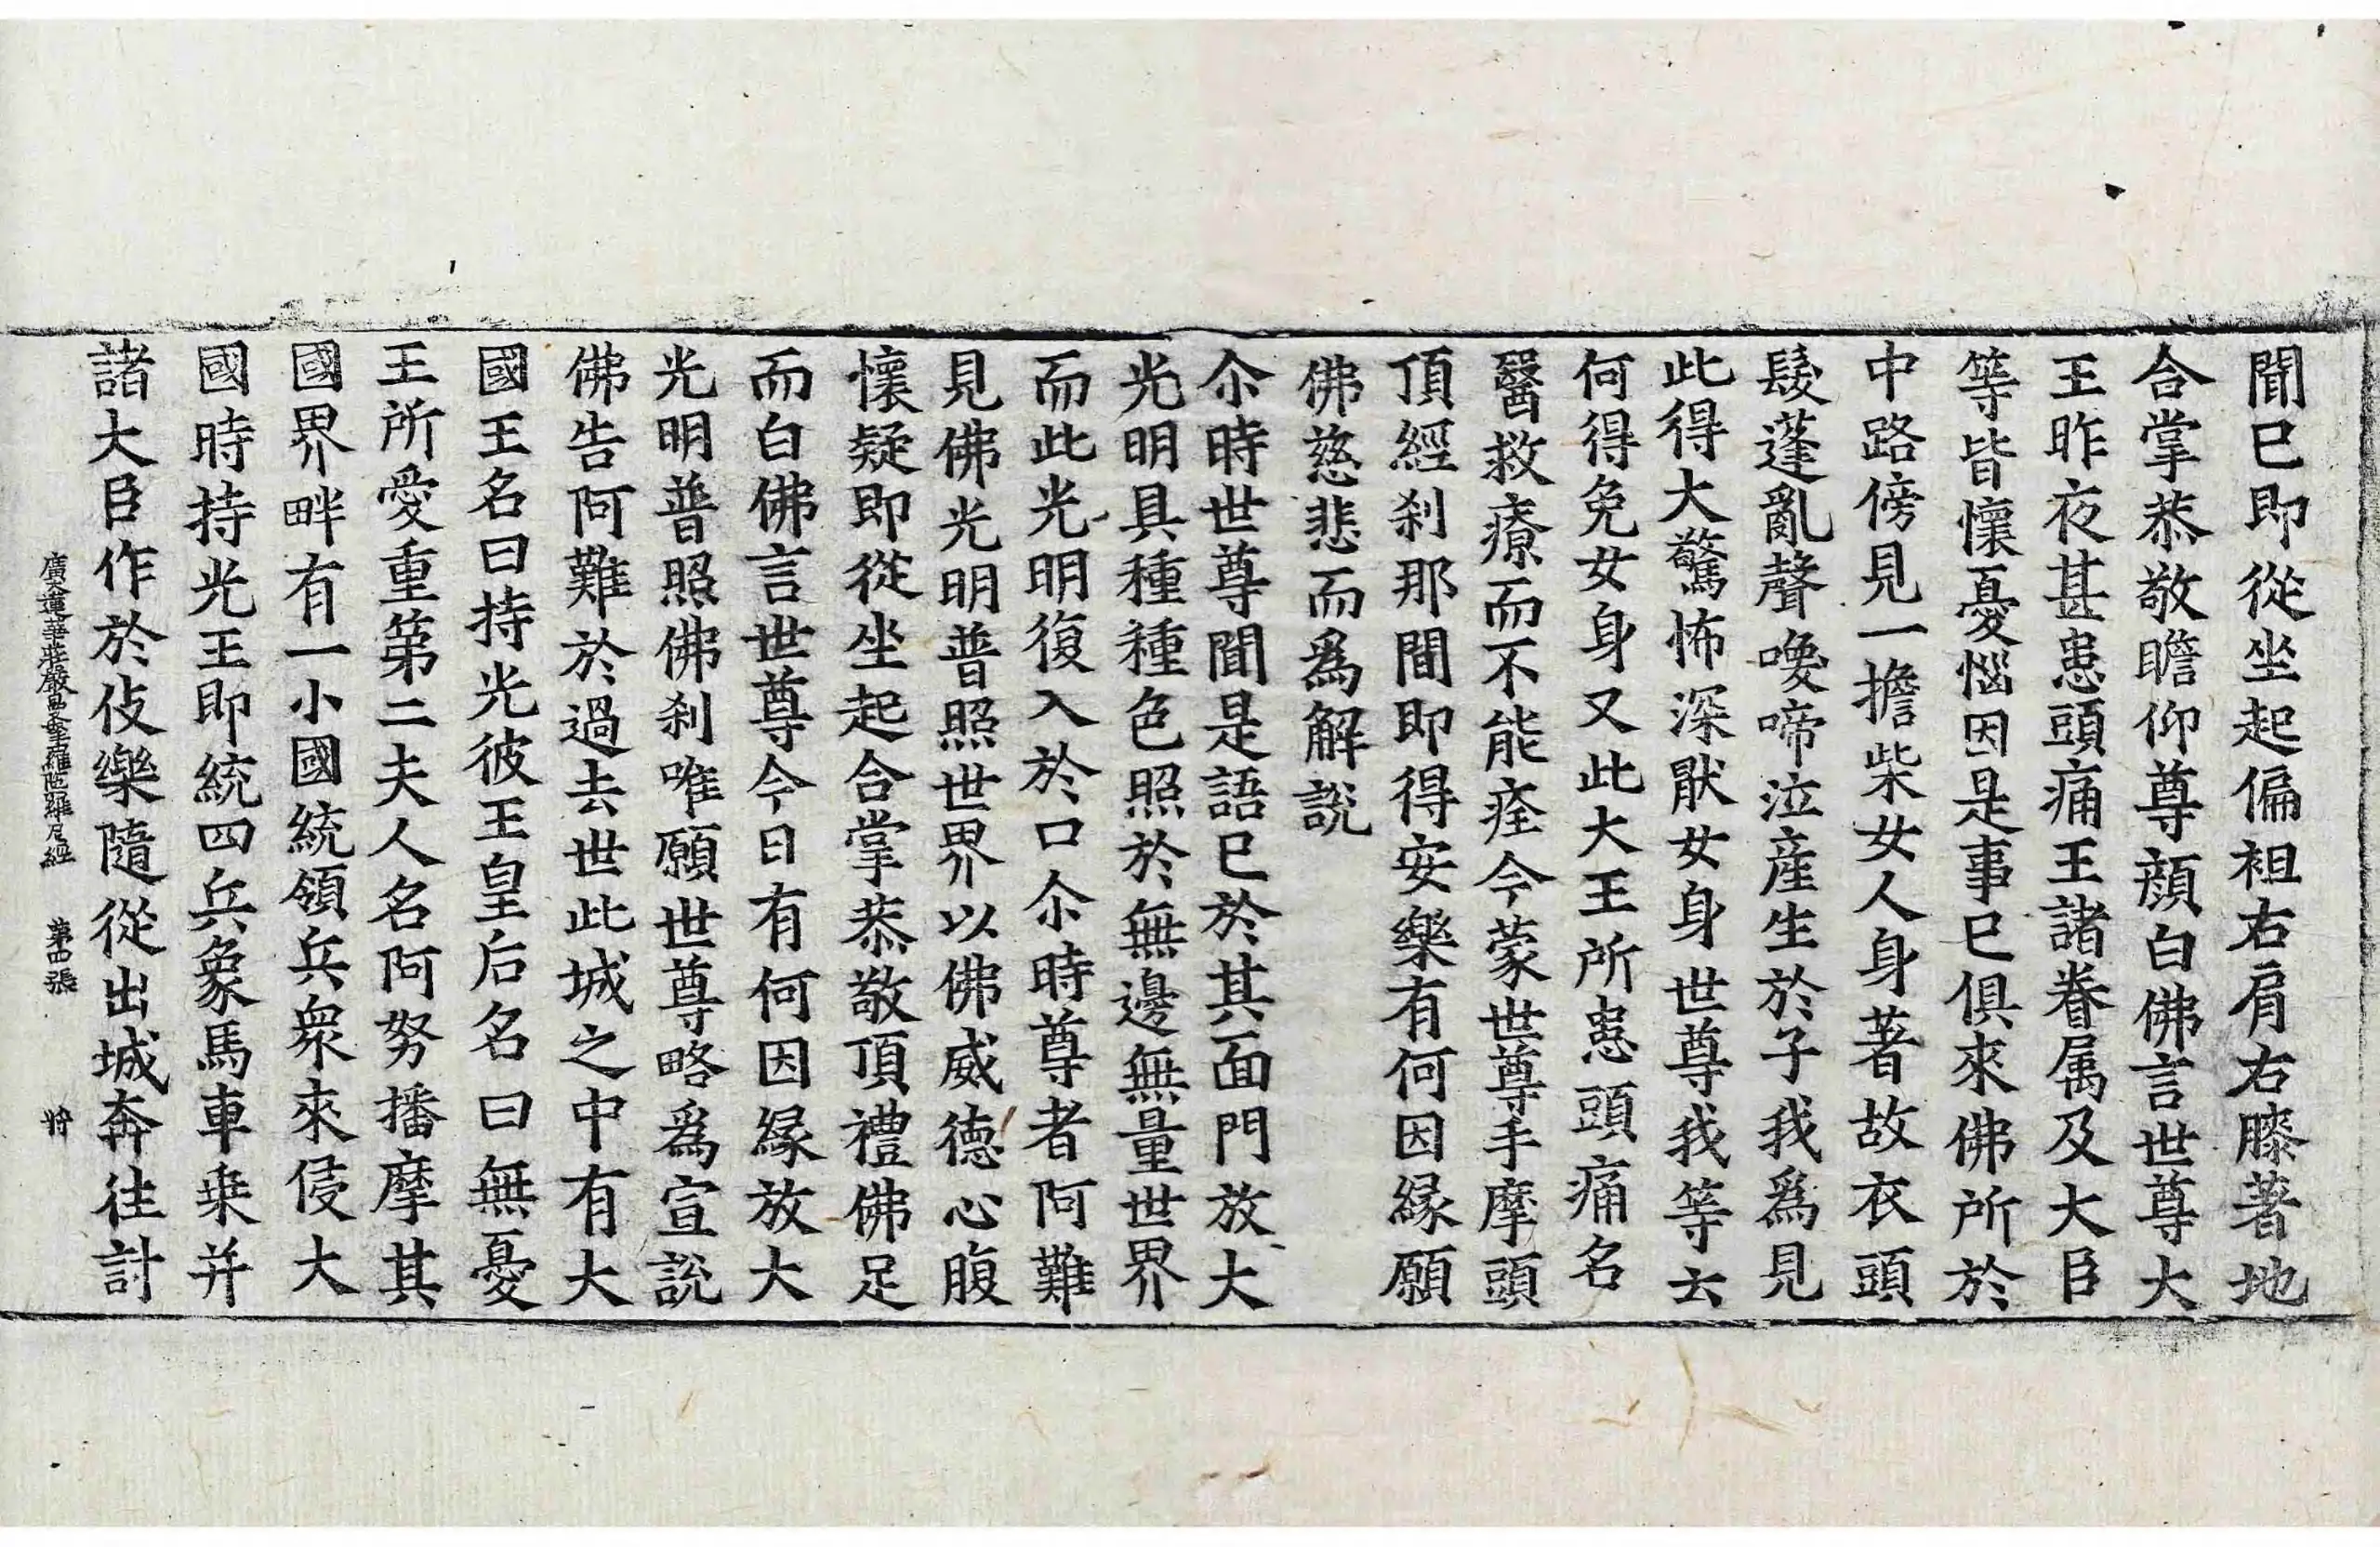 聞已即從坐起偏袒右肩右膝著地
合掌恭敬瞻仰尊顔白佛言世尊大
王昨夜甚患頭痛王諸眷属及大臣
等皆懷憂惱因是事已俱來佛所於
中路傍見一擔柴女人身著故衣頭
髮蓬亂聲喚啼泣産生於子我爲見
此得大驚怖深猒女身世尊我等云
何得免女身又此大王所患頭痛名
醫救療而不能痊今蒙世尊手摩頭
頂經刹那間即得安樂有何因緣願
佛慈悲而爲解說
尒時世尊聞是語已於其面門放大
光明具種種色照於無邊無量世界
而此光明復入於口尒時尊者阿難
見佛光明普照世界以佛威德心腹
懷疑即從坐起合掌恭敬頂禮佛足
而白佛言世尊今日有何因緣放大
光明普照佛刹唯願世尊略爲宣說
佛告阿難於過去世此城之中有大
國王名曰持光彼王皇后名曰無憂
王所愛重第二夫人名阿努播摩其
國界畔有一小國統領兵衆來侵大
國時持光王即統四兵象馬車乗并
諸大臣作於伎樂隨從出城奔往討
廣大蓮華莊嚴曼拏羅陁羅尼經 第四張 將